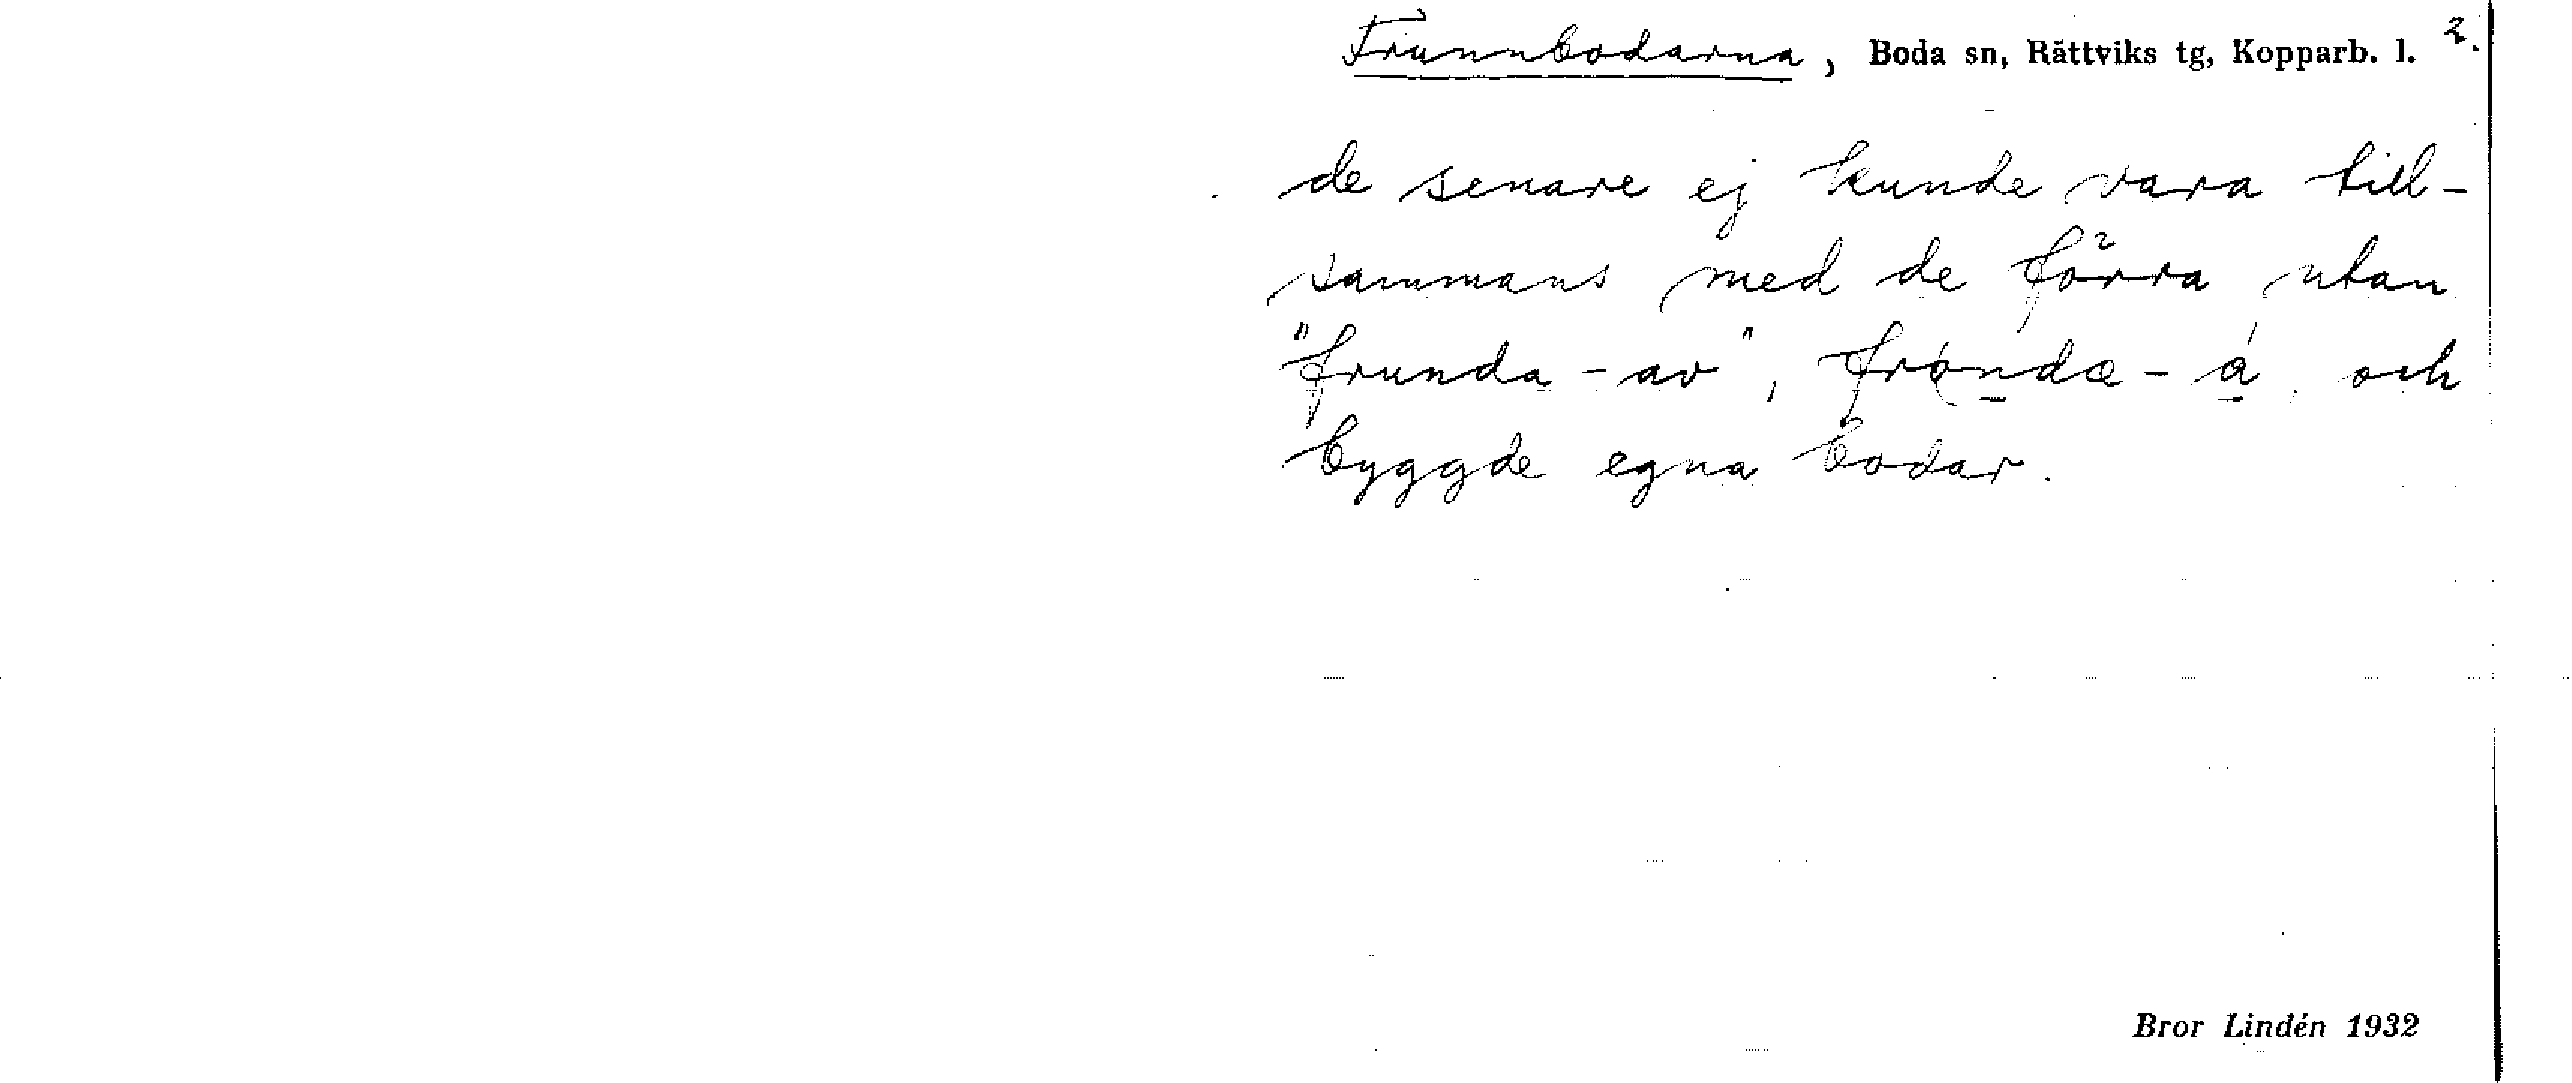 Frunnbodarna, Boda sn, Rättviks tg, Kopparb. l. 2.
de senare ej kunde vara till-
sammans med de förra utan
"frunda-av", fróndæ-á, och
byggde egna bodar.
Bror Lindén 1932